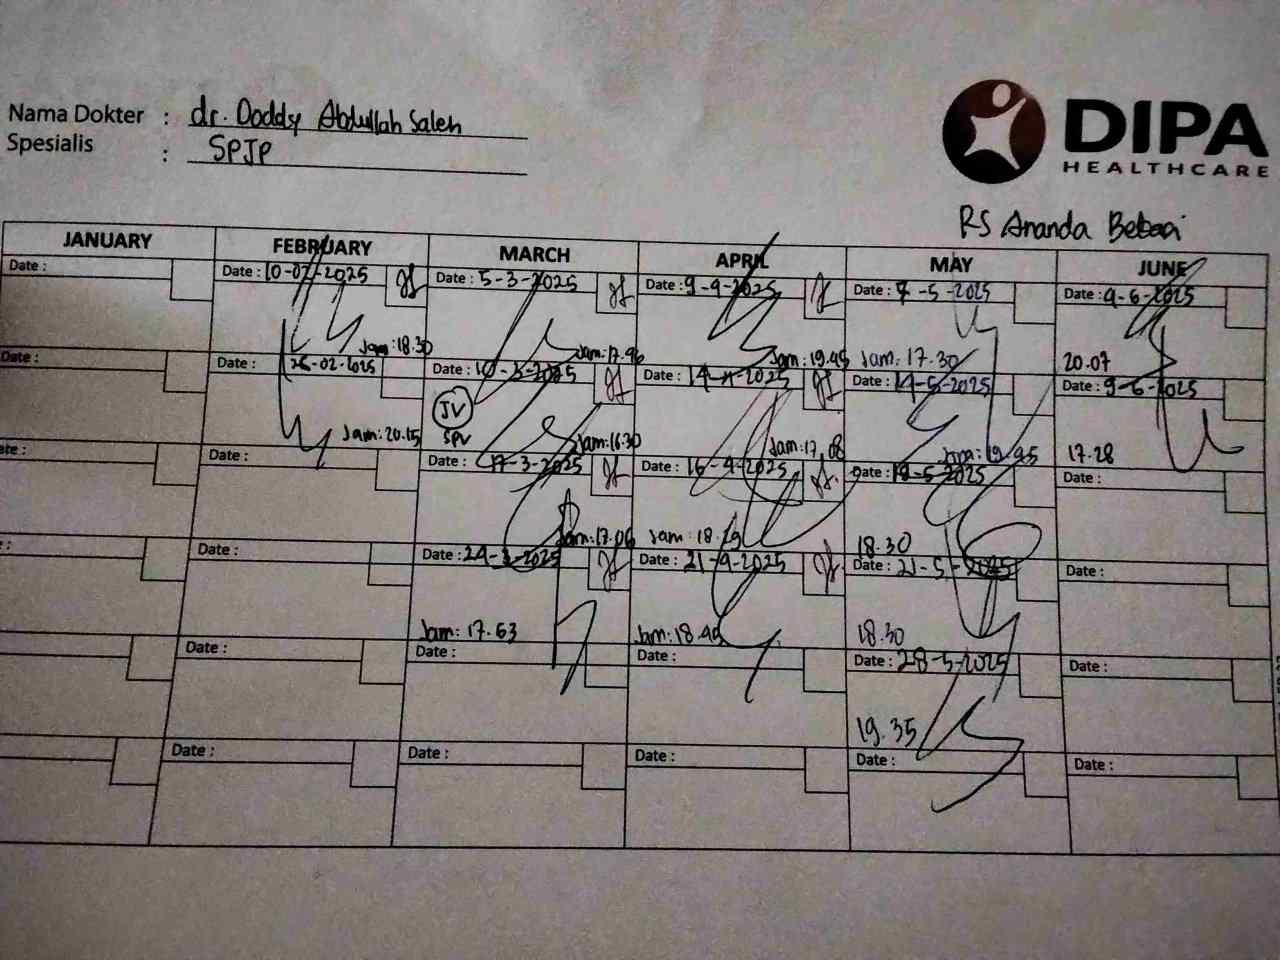 Nama Dokter : dr. Doddy Abdullah Saleh
Spesialis : SPJP
DIPA
HEALTHCARE
RS Ananda Bekasi
JANUARY FEBRUARY MARCH APRIL MAY JUNE
Date : Date : 10-02-2025 Date : 5-3-2025 Date : 9-4-2025 Date : 7-5-2025 Date : 4-6-2025
Jam: 18.30 Jam: 17.46 Jam: 19.45 Jam: 17.30 20.07
Date : Date : 26-02-2025 Date : 10-3-2025 Date : 14-4-2025 Date : 14-5-2025 Date : 9-6-2025
JV
SPV
Jam: 20.15 Jam: 16.30 Jam: 17.08 Jam: 19.45 17.28
Date : Date : 17-3-2025 Date : 16-4-2025 Date : 19-5-2025 Date :
Jam: 17.06 Jam: 18.29 18.30
Date : Date : 24-3-2025 Date : 21-4-2025 Date : 21-5-2025 Date :
Jam: 17.53 Jam: 18.40 18.30
Date : Date : Date : Date : 28-5-2025 Date :
19.35
Date : Date : Date : Date : Date :